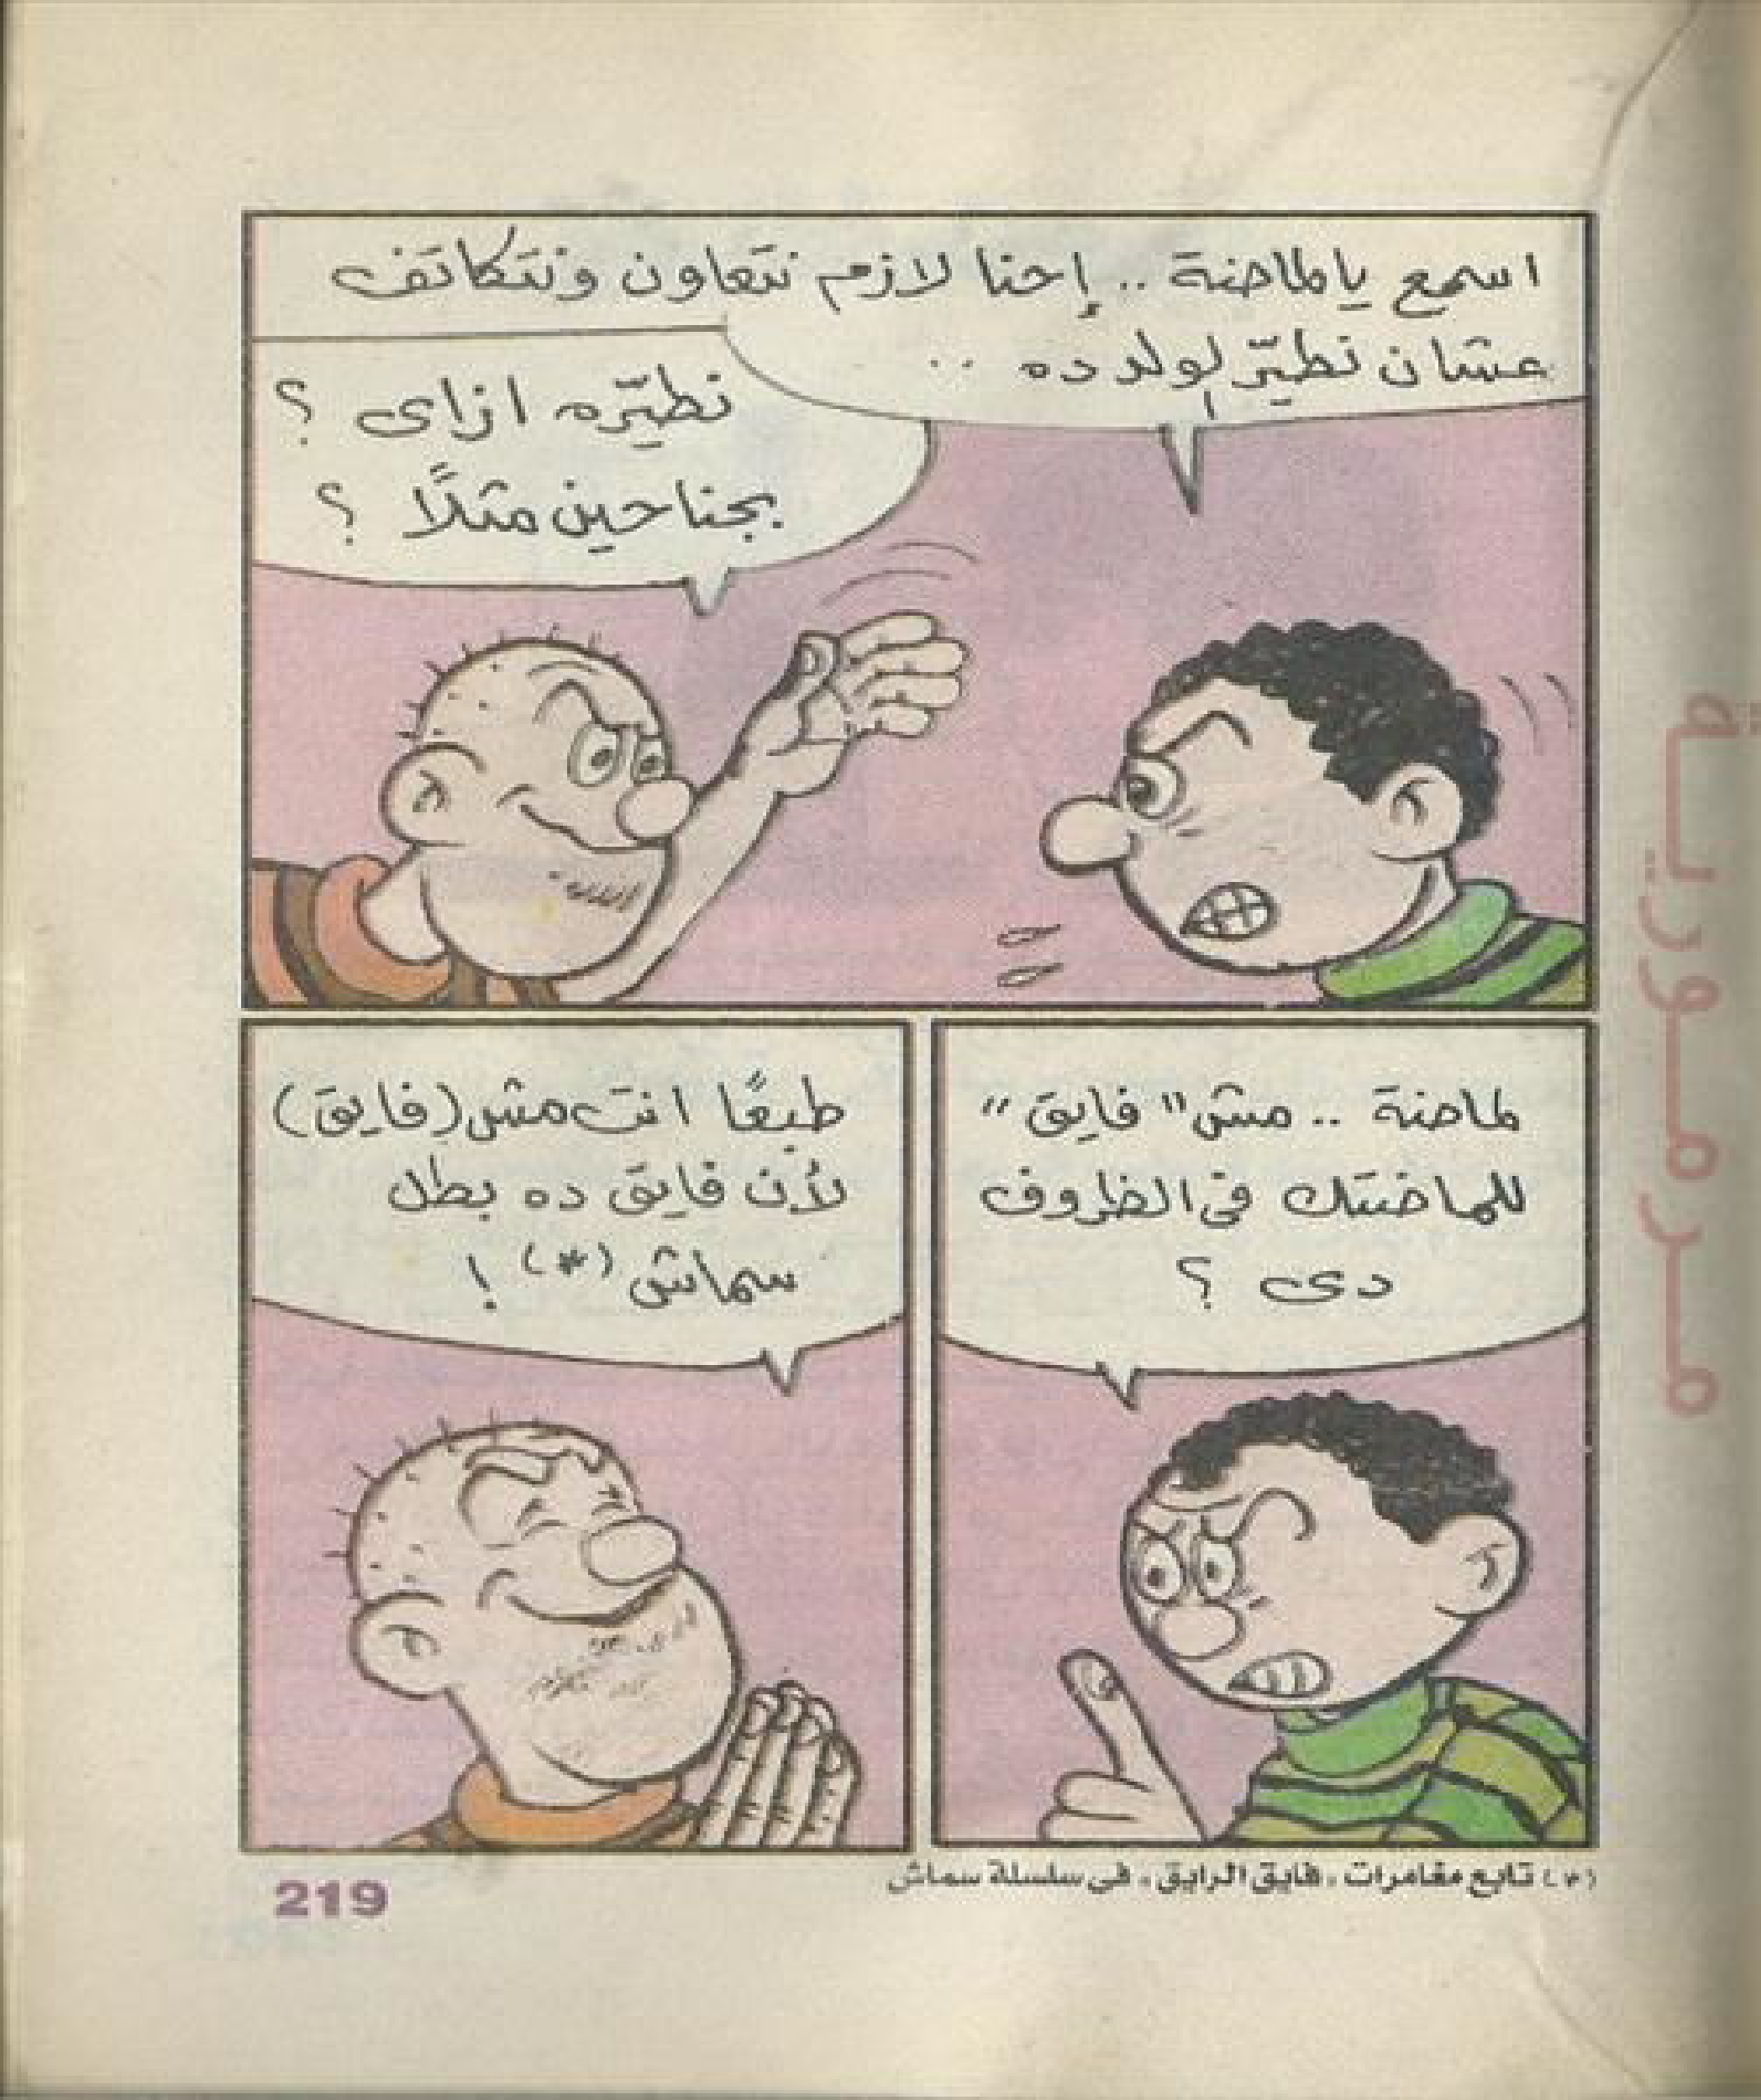 اسمع يا لماضة .. إحنا لازم نتعاون ونتكاتف
عشان نطيّر لولد ده ..
نطيّره ازاى ؟
بجناحين مثلًا ؟
لماضة .. مش "فايق"
للماضتك فى الظروف
دى ؟
طبعًا انت مش (فايق)
لأن فايق ده بطل
سماش (*) !
(*) تابع مغامرات «فايق الرايق» فى سلسلة سماش
219
مرمورية